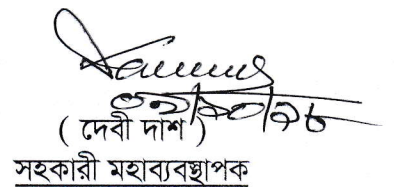 ০২/১০/২৮
( দেবী দাশ )
সহকারী মহাব্যবস্থাপক